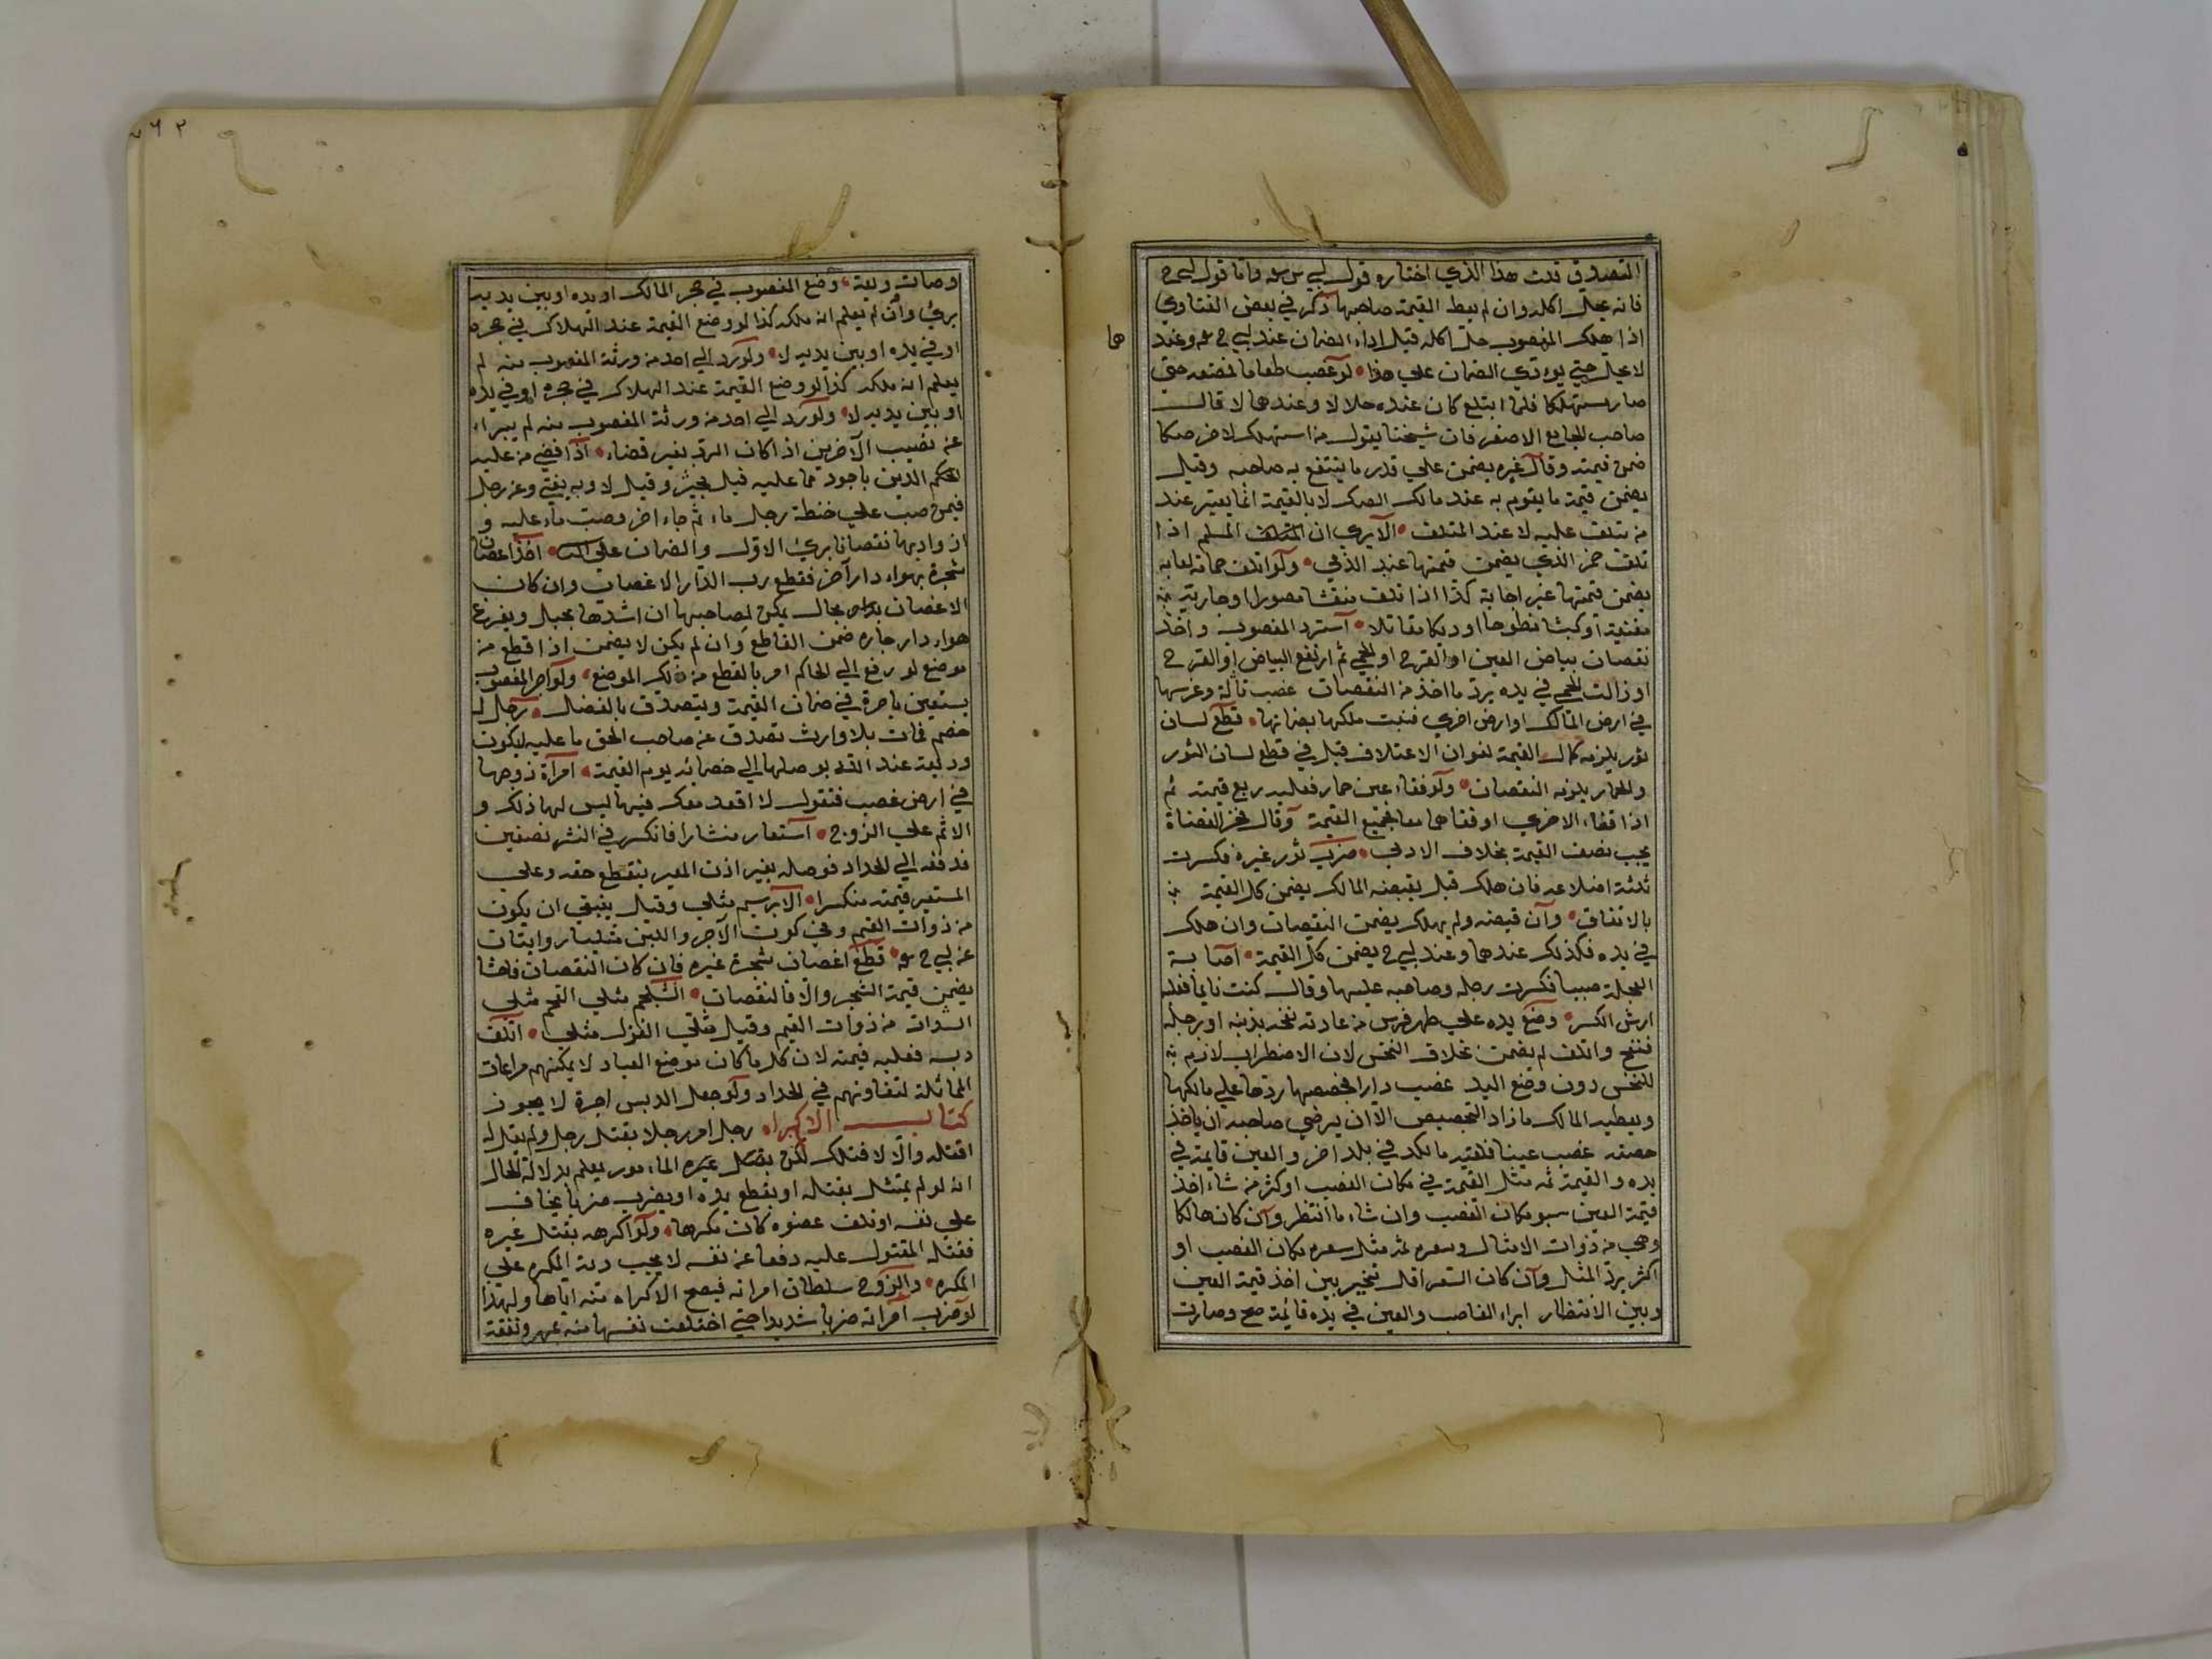 التصدق قلت هذا الذي اختاره قول ابي س سه واما قول ابي ح
فانه يحل اكله وان لم يعط القيمة صاحبها ذكر في بعض الفتاوي
اذا هلك المغصوب حل اكله قبل اداء الضمان عند ابي ح سه وعند
هما
لا يحل حتي يودي الضمان علي هذا لو غصب طعاما فمضغه حتي
صار مستهلكا فلما ابتلع كان عنده حلالا وعندهما لا قال
صاحب الجامع الاصغر فان شيخنا يقول من استهلك لاخر صكا
ضمن قيمته وقال غيره يضمن علي قدر ما ينتفع به صاحبه وقيل
يضمن قيمة ما يقوم به عند مالك الصك لا بالقيمة انما يعتبر عند
من تلف عليه لا عند المتلف الا يري ان المسلم اذا
تلف خمر الذي يضمن قيمتها عند الذمي ولو اتلف حمامة لعابه
يضمن قيمتها غير لعابة كذا اذا تلف مصورا او جارية
مغنية او كبشا نطوحا او ديكا مقاتلا استرد المغصوب واخذ
نقصان بياض العين او القرح او الحمي ثم ارتفع البياض او القرح
او زالت الحمي في يده يرد ما اخذ من النقصان غصب تالة وغرسها
في ارض المالك او ارض اخري فنبت ملكها بضمانها قطع لسان
ثور يلزمه كمال القيمة لفوات الاعتلاف قيل في قطع لسان الثور
والحمار يلزمه النقصان ولو فقاء عين حمار فعليه ربع قيمته ثم
اذا فقاء الاخري او فقاهما معا فجميع القيمة وقال فخر القضاة
يجب نصف القيمة بخلاف الادمي ضرب ثور غيره فكسرت
ثلثة اضلاعه فان هلك قبل يقبضه المالك يضمن كل القيمة
بالاتفاق وان قبضه ولم يهلك يضمن النقصان وان هلك
في يده فكذلك عندهما وعند ابي ح يضمن كل القيمة اصابة
العجلة صبيا فكسرت رجله وصاحبه عليها وقال كنت نايما فعليه
ارش الكسر وضع يده علي ظهر فرس من عادته نخه بذنبه او برجله
فنفح واتلف لم يضمن بخلاف النخس لان الاضطراب لازم
للنخس دون وضع اليد غصب دارا فجصصها ردها علي مالكها
ويعطيه المالك ما زاد التجصيص الا ان يرضي صاحبه ان ياخذ
جصصه غصب عينا فلقيه مالكه في بلد اخر والعين قايمة في
يده والقيمة ثمه مثل القيمة في مكان الغصب او كثر من شاء اخذ
قيمة العين مكان الغصب وان شاء ما انتظر وان كان هالكا
وهي من ذوات الامثال وسعره ثمه مثل سعره مكان الغصب او
اكثر يرد المثل وان كان السعر اقل تخير بين اخذ قيمة العين
وبين الانتظار ابراء الغاصب والعين في يده قائمة صح وصارت
٢٦٢
وصارت وديعة وضع المغصوب في حجر المالك او يده او بين يديه
بريء وان لم يعلم انه ملكه كذا لو وضع القيمة عند الهلاك في حجره
او في يده او بين يديه لا ولو رد الي احد من ورثة المغصوب منه لم
يعلم انه ملكه كذا لو وضع القيمة عند الهلاك في حجره او في يده
او بين يديه لا ولو رد الي احد من ورثة المغصوب منه لم يبراء
عن نصيب الاخرين اذا كان الرد بغير قضاء اذا قضي من عليه
بحكم الدين باجود مما عليه قيل يجبر وقيل لا وبه يفتي وعن رجل
فيمن صب علي حنطة رجل ماء ثم جاء اخر وصب ماء عليه و
ازداد بها نقصانا بريء الاول والضمان علي اخذ اغصان
شجرة بهواء دار آخر فقطع رب الدار الاغصان وان كان
الاغصان بحال يمكن لصاحبها ان اشدها بحبل ويفرغ
هواء دار جاره ضمن القاطع وان لم يكن لا يضمن اذا قطع من
موضع لو رفع الي الحاكم امر بالقطع من ذلك الموضع ولو آجر المغصوب
يستعين باجرة في ضمان القيمة ويتصدق بالفضل رجل له
خصم فمات بلا وارث تصدق عن صاحب الحق ما عليه ليكون
وديعة عند الله يوصلها الي خصمائه يوم القيمة امرأة زوجها
في ارض غصب فتقول لا اقعد معك فيها ليس لها ذلك و
الاثم علي الزوج استعار منشارا فانكسر في النشر نصفين
فدفعه الي الحداد فوصله بغير اذن المعير ينقطع حقه وعلي
المستعير قيمته منكسرا الابريسم مثلي وقيل ينبغي ان يكون
من ذوات القيم وفي كون الآجر واللبن مثليا روايتان
عن ابي ح سه قطع اغصان شجرة غيره فان كان النقصان فاحشا
يضمن قيمة الشجر والا فالنقصان الشلجم مثلي الفحم مثلي
من ذوات القيم وقيل مثلي الغزل مثلي اتلف
دبسه فعليه قيمته لان كل ما كان موضع العباد لا يمكنهم مراعات
المماثلة لتفاوتهم في الحداد ولو جعل الدبس اجرة لا يجوز
كتاب الاكراه رجل امر رجلا بقتل رجل ولم يقل له
اقتله والا لاقتلك لكن بقتل غيره المامور يعلم بدلالة الحال
انه لو لم يمتثل يقتله او يقطع يده او يضرب ضربا يخاف
علي نفسه او تلف عضوه كان مكرها ولو اكرهه بقتل غيره
فقتله المقتول عليه دفعا عن نفسه لا يجب دية المكره علي
المكره والزوج سلطان امراته فيصح الاكراه منه اياها ولهذا
لو ضرب امراته ضربا شديدا حتي اختلعت نفسها منه عهر ونفقة